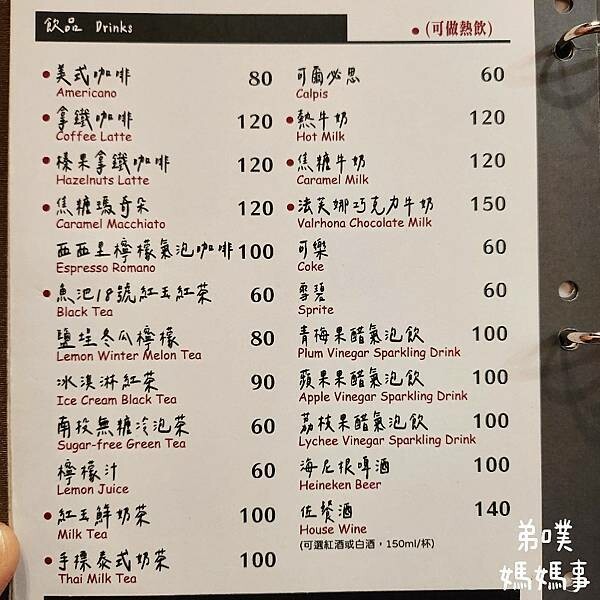 飲品 Drinks
•(可做熱飲)
•美式咖啡 80
Americano
•拿鐵咖啡 120
Coffee Latte
•榛果拿鐵咖啡 120
Hazelnuts Latte
•焦糖瑪奇朵 120
Caramel Macchiato
西西里檸檬氣泡咖啡 100
Espresso Romano
•魚池18號紅玉紅茶 60
Black Tea
鹽埕冬瓜檸檬 80
Lemon Winter Melon Tea
冰淇淋紅茶 90
Ice Cream Black Tea
南投無糖冷泡茶 60
Sugar-free Green Tea
檸檬汁 60
Lemon Juice
•紅玉鮮奶茶 100
Milk Tea
•手標泰式奶茶 100
Thai Milk Tea
可爾必思 60
Calpis
•熱牛奶 120
Hot Milk
•焦糖牛奶 120
Caramel Milk
•法芙娜巧克力牛奶 150
Valrhona Chocolate Milk
可樂 60
Coke
雪碧 60
Sprite
青梅果醋氣泡飲 100
Plum Vinegar Sparkling Drink
蘋果果醋氣泡飲 100
Apple Vinegar Sparkling Drink
荔枝果醋氣泡飲 100
Lychee Vinegar Sparkling Drink
海尼根啤酒 100
Heineken Beer
佐餐酒 140
House Wine
(可選紅酒或白酒,150ml/杯)
弟噗
媽媽事